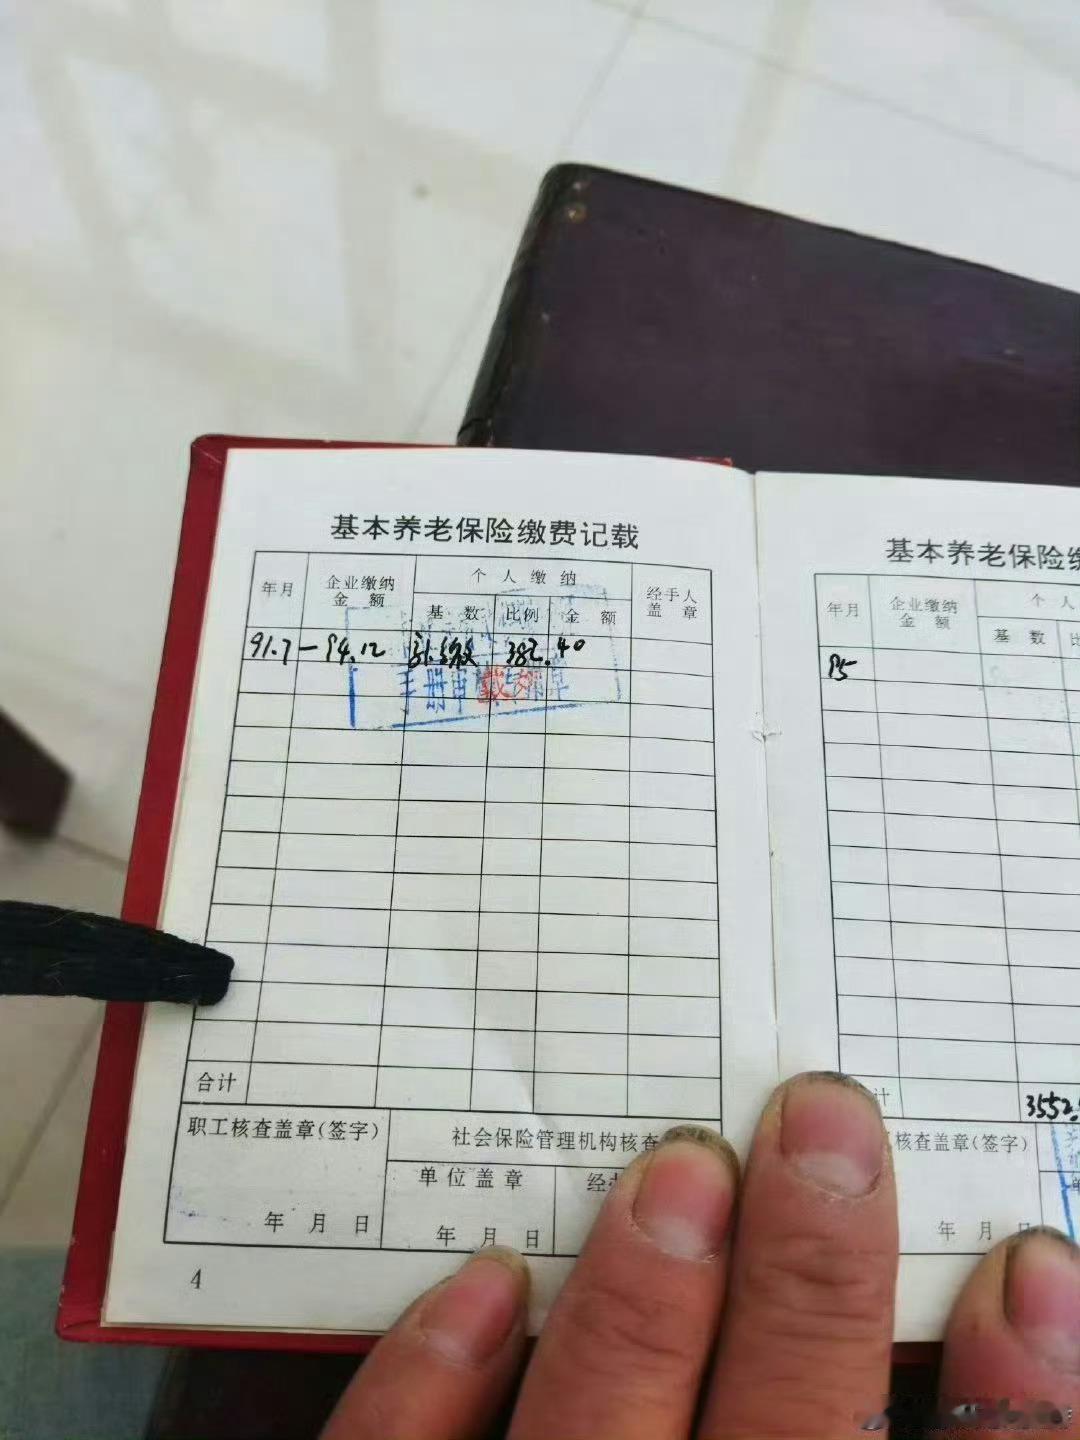 基本养老保险缴费记载
年月 企业缴纳金额 个人缴纳 经手人盖章
基数 比例 金额
91.7—94.12 382.40
手册审
合计
职工核查盖章(签字) 社会保险管理机构核查
单位盖章
年 月 日 年 月 日
4
基本养老保险
年月 企业缴纳金额 个人
基数
95
计 3552.
核查盖章(签字)
年 月